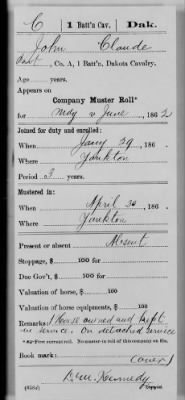 C | 1 Batt'n Cav. | Dak.
John Claude
Pvt, Co. A, 1 Batt'n, Dakota Cavalry.
Age years.
Appears on
Company Muster Roll*
for May & June, 1862
Joined for duty and enrolled:
When Jany 29, 186
Where Yankton
Period 3 years.
Mustered in:
When April 30, 186
Where Yankton
Present or absent Absent
Stoppage, $ 100 for
Due Gov't, $ 100 for
Valuation of horse, $ 100
Valuation of horse equipments, $ 100
Remarks: 1 Horse owned and kept
in service. On detached service
Book mark:
(over)
Kennedy
Copyist.